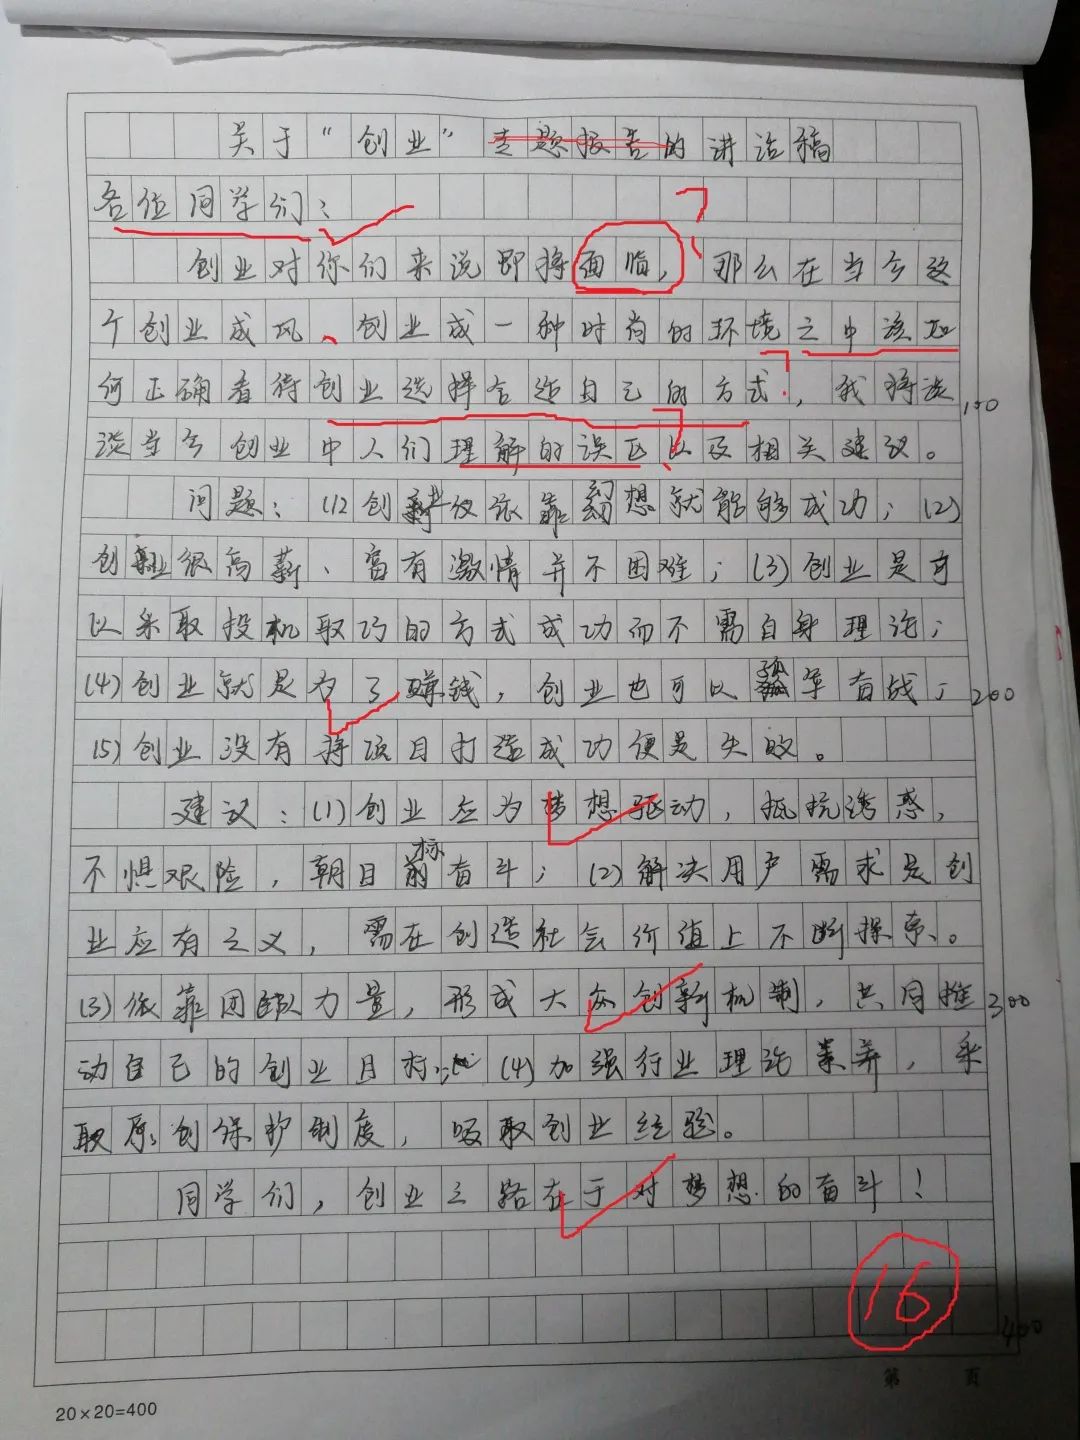 关于“创业”专题报告的讲话稿
各位同学们：
创业对你们来说即将面临，那么在当今这
个创业成风、创业成一种时尚的环境之中该如
何正确看待创业选择合适自己的方式，我将谈
谈当今创业中人们理解的误区以及相关建议。
问题：(1)创业仅依靠幻想就能够成功；(2)
创业很高薪、富有激情并不困难；(3)创业是可
以采取投机取巧的方式成功而不需自身理论；
(4)创业就是为了赚钱，创业也可以孤军奋战；
(5)创业没有将项目打造成功便是失败。
建议：(1)创业应为梦想驱动，抵抗诱惑，
不惧艰险，朝目标奋斗；(2)解决用户需求是创
业应有之义，需在创造社会价值上不断探索。
(3)依靠团队力量，形成大众创新机制，共同推
动自己的创业目标；(4)加强行业理论素养，采
取原创保护制度，吸取创业经验。
同学们，创业之路在于对梦想的奋斗！
100
200
300
400
16
第 页
20×20=400